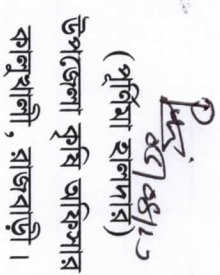 (পূর্ণিমা হালদার)
উপজেলা কৃষি অফিসার
কালুখালী, রাজবাড়ী।